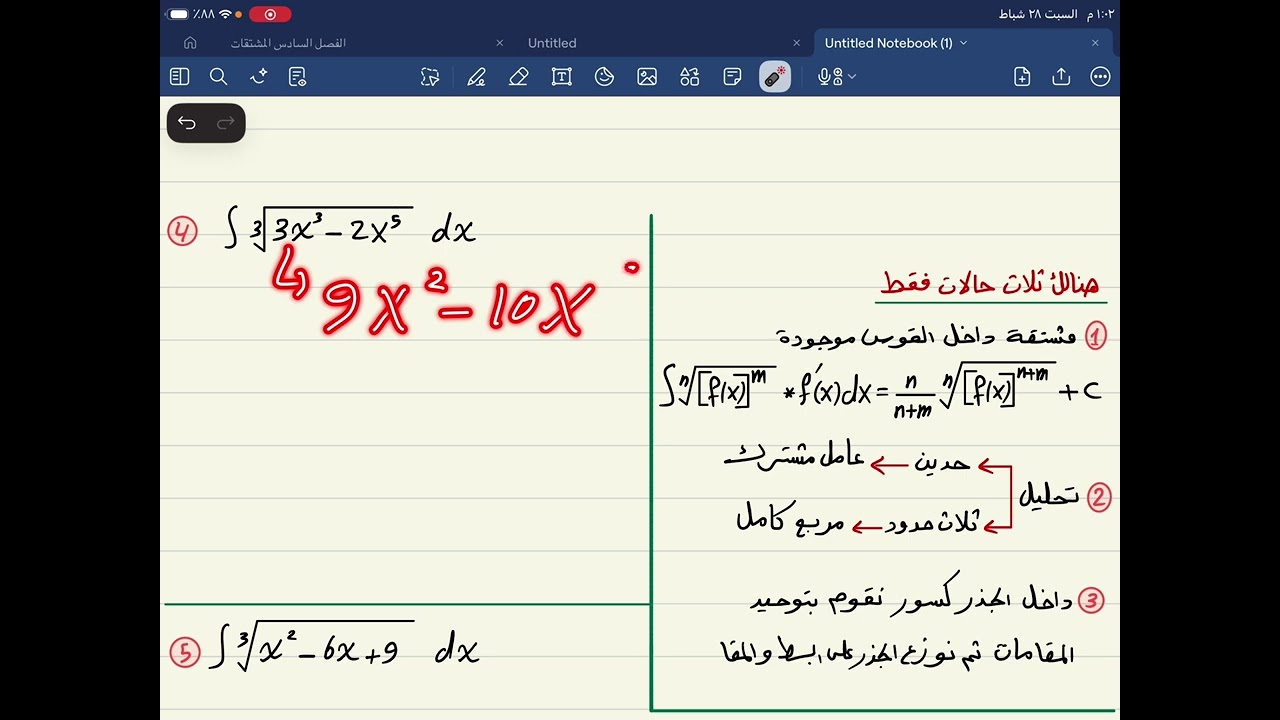 ٪٨٨
١:٠٢ م السبت ٢٨ شباط
الفصل السادس المشتقات
Untitled
Untitled Notebook (1)
④ ∫ ∛(3x³ − 2x⁵) dx
↳ 9x² − 10x
هنالك ثلاث حالات فقط
① مشتقة داخل القوس موجودة
∫ ⁿ√([f(x)]ᵐ) * f′(x)dx = n/(n+m) ⁿ√([f(x)]ⁿ⁺ᵐ) + C
② تحليل
حدين ← عامل مشترك
ثلاث حدود ← مربع كامل
③ داخل الجذر كسور نقوم بتوحيد
المقامات ثم نوزع الجذر على البسط والمقا
⑤ ∫ ∛(x² − 6x + 9) dx